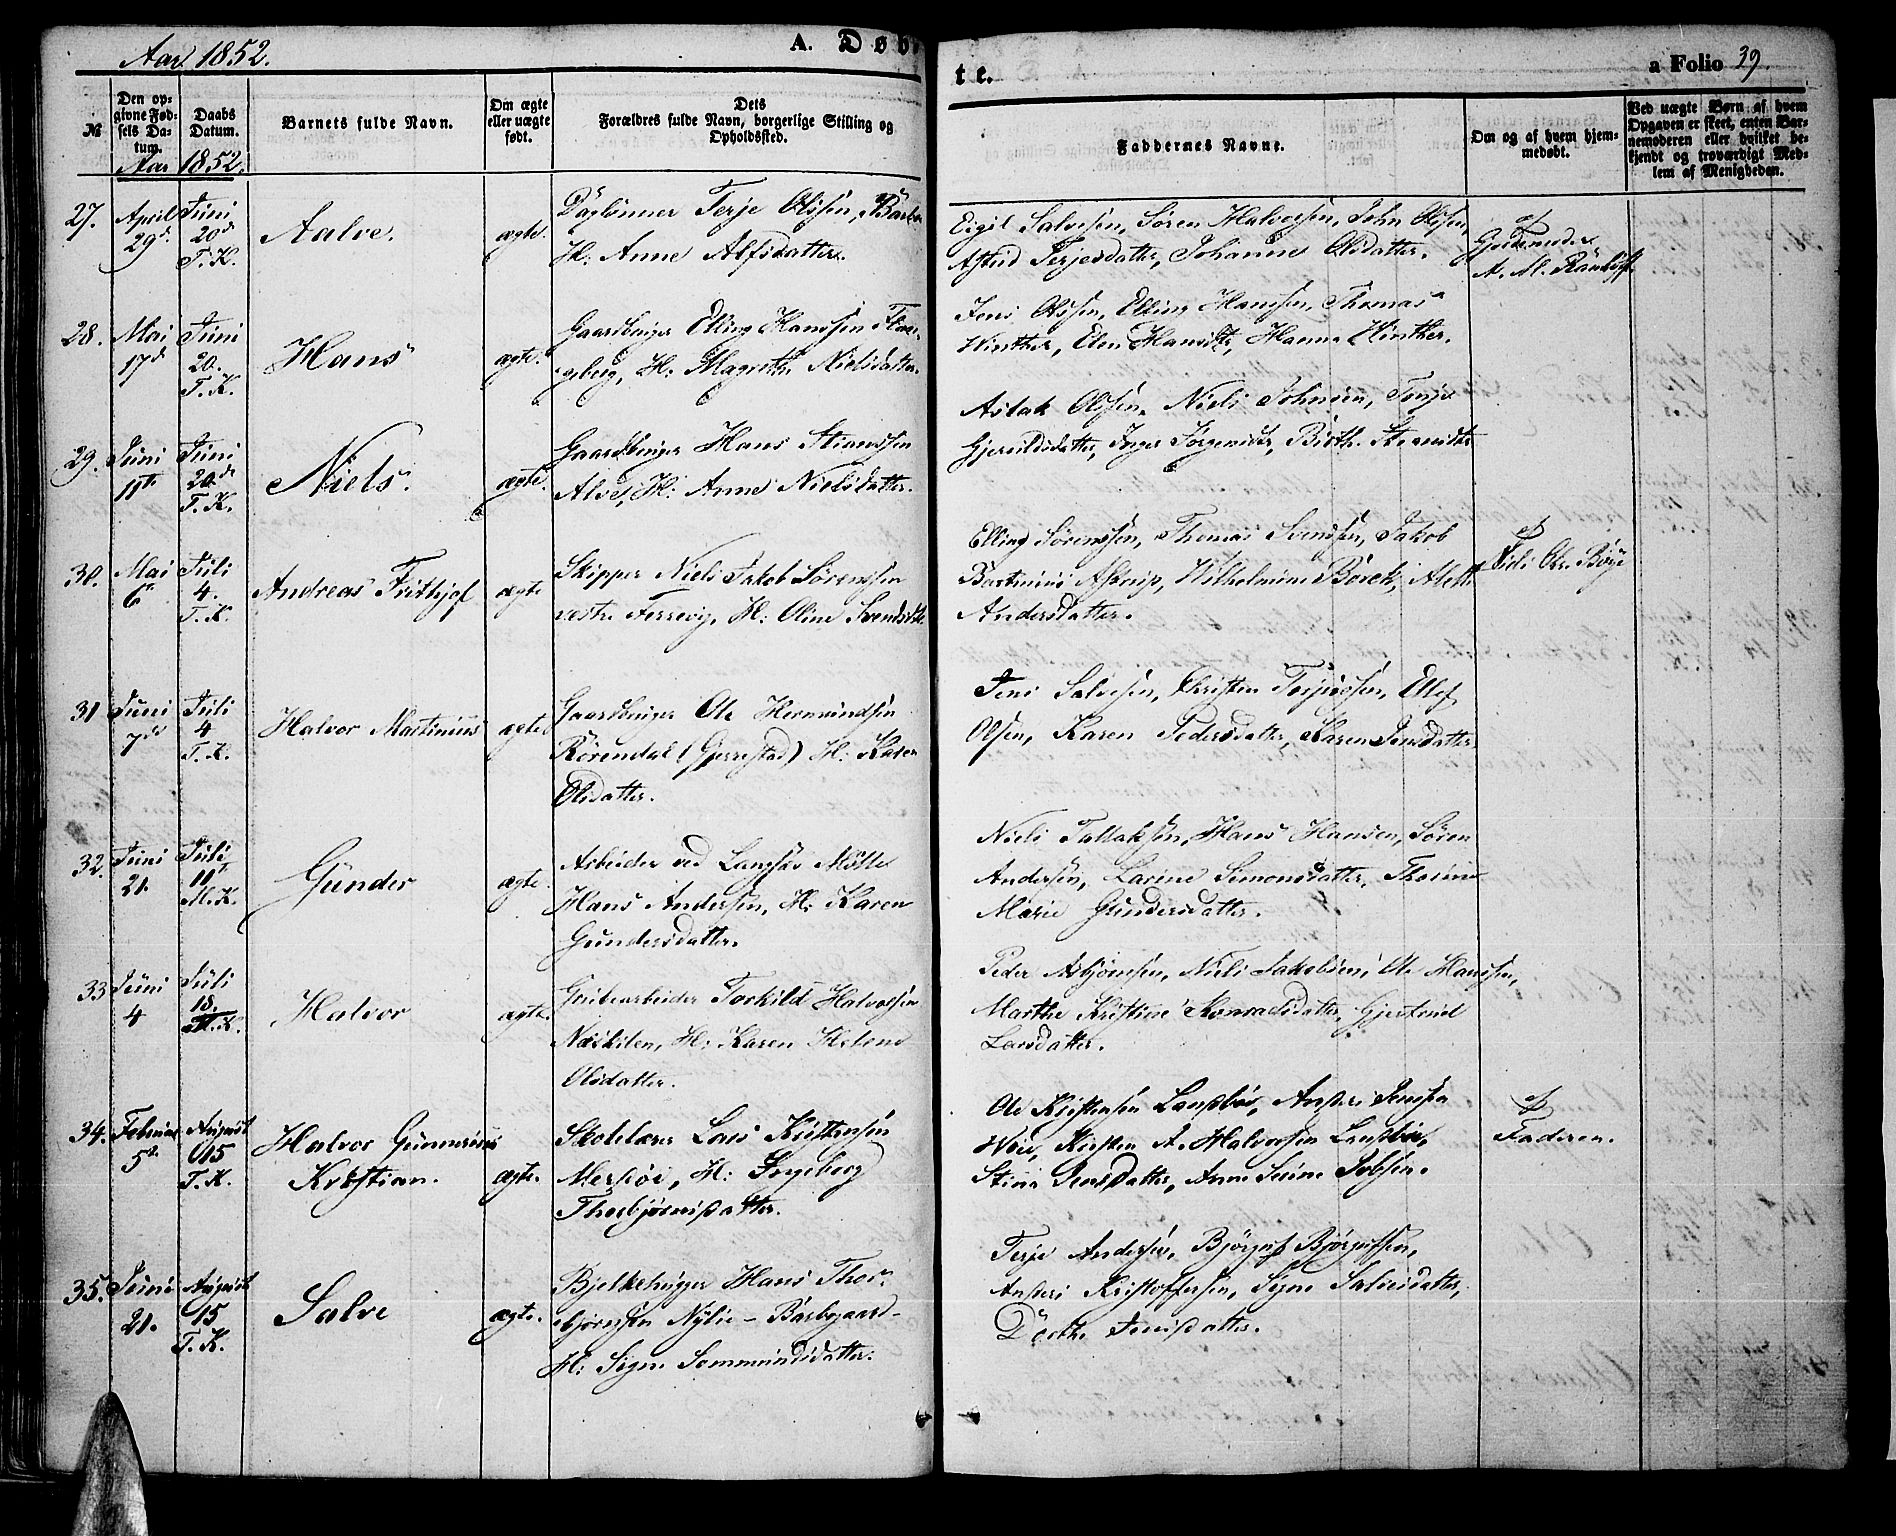 Aar 1852.
A. Døb-
te.
a Folio 39.
№
Den op-
givne Fød-
sels Da-
tum.
Daabs
Datum.
Barnets fulde Navn.
Om ægte
eller uægte
født.
Dets
Forældres fulde Navn, borgerlige Stilling og
Opholdssted.
Faddernes Navne.
Om og af hvem hjem-
medøbt.
Ved uægte Børn af hvem
Opgaven er skeet, enten Bar-
nemoderen eller hvilket be-
kjendt og troværdigt Med-
lem af Menigheden.
Aar 1852.
27.
April
29d
Juni
20d
T. K.
Aalve.
ægte.
Daglønner Terje Olssen, Barbu
H: Anne Alfsdatter.
Eigil Salvesen, Søren Halvorsen, John Olsen,
Astrid Terjesdatter, Johanne Olsdatter.
af
Gjordemoder
A. M.
28.
Mai
17d
Juni
20.
T. K.
Hans
ægte.
Gaardbruger Elling Hanssen
H: Magrethe Nielsdatter.
Jens Olssen, Elling Hanssen, Thomas
Winther, Elen Hansdtr, Hanne Winther.
29.
Juni
11te
Juni
20d
T. K.
Niels.
ægte.
Gaardbruger Hans Stianssen
Alve, H: Anne Nielsdatter.
Aslak Olssen, Niels Johnsen, Tonje
Gjeruldsdatter, Inger Jørgensdtr, Birthe
30.
Mai
6te
Juli
4.
T. K.
Andreas Frithjof
ægte
Skipper Niels Jakob Sørenssen
vestre Ferrevig, H: Oline Svendsdtr.
Elling Sørenssen, Thomas Svendsen, Jakob
Bartinius Astrup, Wilhelmine Borch, Alette
Andersdatter.
af
Chr. Bøye
31
Juni
7de
Juli
4
T. K.
Halvor Martinius
ægte
Gaardbruger Ole Hermundsen
Rørendal (Gjerrestad) H: Karen
Olsdatter.
Jens Salvesen, Christen Terjessen, Ellef
Olsen, Karen Pedersdatter, Karen Jensdatter
32.
Juni
21.
Juli
11te
M. K.
Gunder
ægte.
Arbeider ved Langsæ Mølle
Hans Andersen, H: Karen
Gundersdatter.
Niels Tallaksen, Hans Hansen, Søren
Andersen, Larine Simonsdatter, Thorine
Marie Gundersdatter.
33
Juni
4
Juli
18.
M. K.
Halvor
ægte.
Grubearbeider Torkild Halvorsen
Næskilen, H: Karen Helene
Olsdatter.
Peder Asbjørnsen, Niels Jakobsen, Ole Hanssen,
Marthe Kristine Konradsdatter, Gjertrud
Larsdatter.
34.
Februar
5te
August
15
T. K.
Halvor Gunnerius
Kristian.
ægte.
Skolelærer Lars Kristensen
H: Ingeborg
Thorbjørnsdatter.
Ole Kristensen Langbøe, Anders Jenssen
Kristen A. Halvorssen Langbøe,
Stine Jensdatter, Anne Serine Jobsen.
af
Faderen.
35.
Juni
21.
August
15
T. K.
Salve
ægte.
Bjelkehugger Hans Thor-
bjørnsen Nylie - Barbogaard -
H: Signe Sommundsdatter.
Terje Andersen, Bjørguf Bjørgufsen,
Anders Kristoffersen, Signe Salvesdatter,
Dorthe Jensdatter.